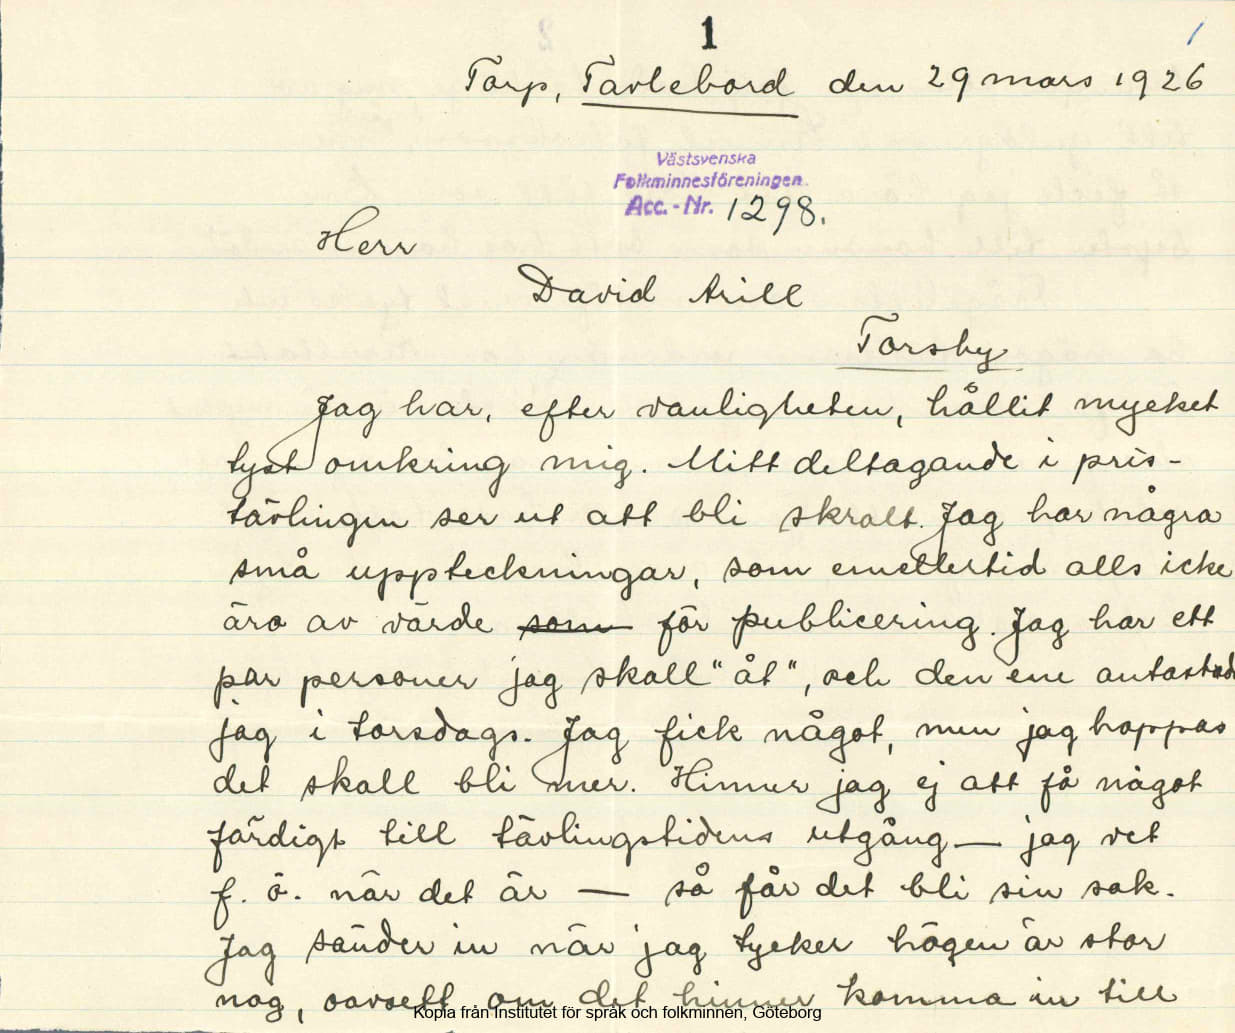 1
1
Torp, Tavlebord den 29 mars 1926
Västsvenska
Folkminnesföreningen.
Acc.-Nr. 1298.
Herr
David Arill
Torsby
Jag har, efter vanligheten, hållit mycket
tyst omkring mig. Mitt deltagande i pris-
tävlingen ser ut att bli skralt. Jag har några
små uppteckningar, som emellertid alls icke
äro av värde som för publicering. Jag har ett
par personer jag skall "åt", och den ene antastade
jag i torsdags. Jag fick något, men jag hoppas
det skall bli mer. Hinner jag ej att få något
färdigt till tävlingstidens utgång — jag vet
f. ö. när det är — så får det bli sin sak.
Jag sänder in när jag tycker högen är stor
nog, oavsett om det hinner komma in till
Kopia från Institutet för språk och folkminnen, Göteborg